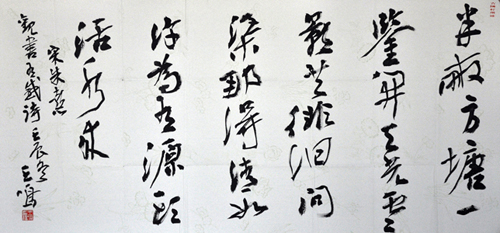 半畝方塘一
鑒開天光雲
影共徘徊問
渠那得清如
許為有源頭
活水來
宋朱熹
觀書有感詩壬辰冬